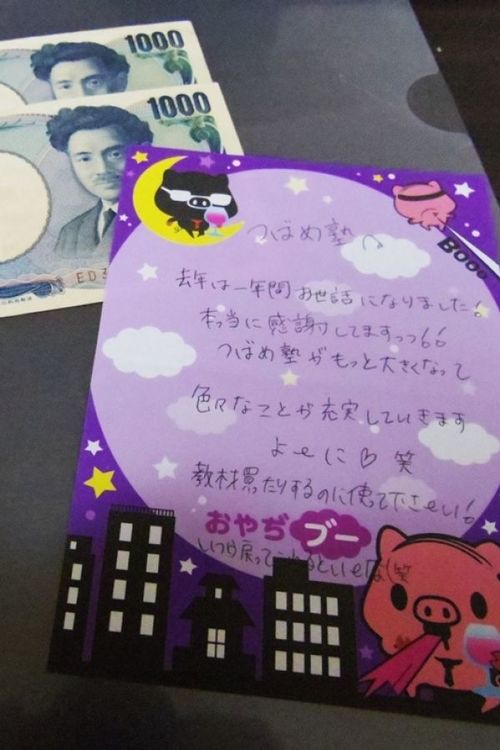 1000
1000
ED
つばめ塾へ
Booo
去年は一年間お世話になりました!
本当に感謝してますっっ66
つばめ塾がもっと大きくなって
色々なことが充実していきます
よーに♡ 笑
教材買たりするのに使て下さい!
おやぢブー
いつか戻ってこれるといーな(笑